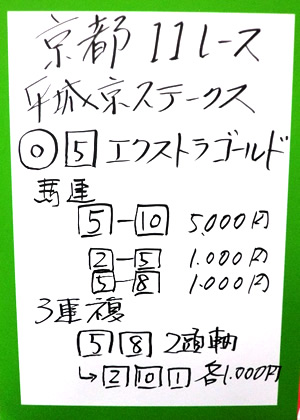 京都11レース
平城京ステークス
◎ 5 エクストラゴールド
馬連
5-10 5,000円
2-5 1,000円
5-8 1,000円
3連複
5 8 2頭軸
↳2 10 1 各1,000円